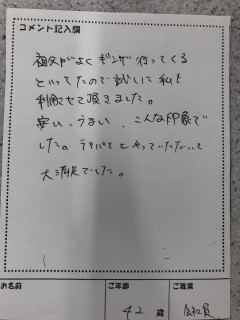 コメント記入欄
祖父がよくギンザ行ってくる
といってたので試しに私も
利用させて頂きました。
安い、うまい、こんな印象で
した。
大満足でした。
お名前
ご年齢
ご職業
42歳
会社員